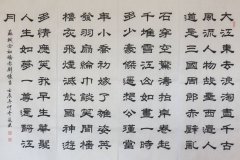 大江東去浪淘盡千古
風流人物故壘西邊人
道是三國周郎赤壁亂
石穿空驚濤拍岸捲起
千堆雪江山如畫一時
多少豪傑遙想公瑾當
年小喬初嫁了雄姿英
發羽扇綸巾談笑間檣
櫓灰飛煙滅故國神遊
多情應笑我早生華髮
人生如夢一尊還酹江
月
蘇軾念奴嬌赤壁懷古